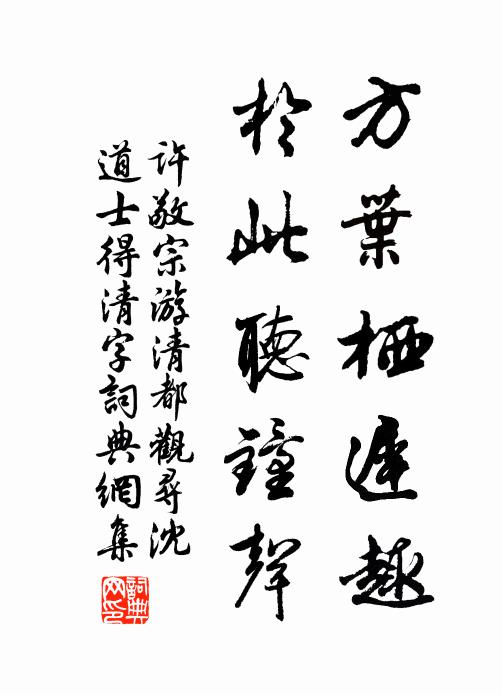 方葉栖遲趣
於此聽鐘聲
許敬宗游清都觀尋沈
道士得清字詞典網集
詞典
网印